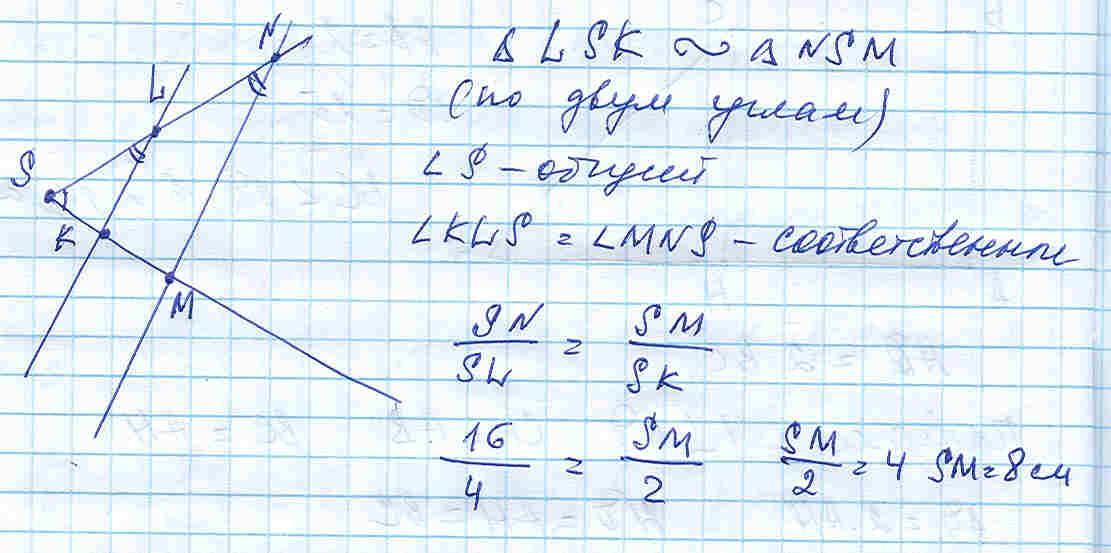 N
L
S
K
M
Δ LSK ~ Δ NSM
(по двум углам)
∠S – общий
∠KLS = ∠MNS – соответственные
SN/SL = SM/SK
16/4 = SM/2 SM/2 = 4 SM = 8 см